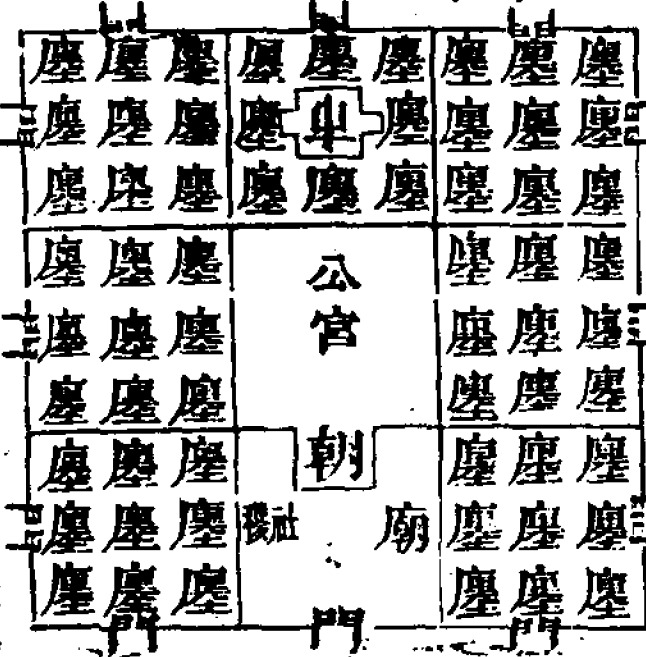 門 門 門
廛 廛 廛 廛 廛 廛 廛 廛 廛
門 廛 廛 廛 廛 市 廛 廛 廛 廛 門
廛 廛 廛 廛 廛 廛 廛 廛 廛
廛 廛 廛 公 廛 廛 廛
門 廛 廛 廛 宮 廛 廛 廛 門
廛 廛 廛 廛 廛 廛
廛 廛 廛 朝 廛 廛 廛
門 廛 廛 廛 廟 社稷 廛 廛 廛 門
廛 廛 廛 廛 廛 廛
門 門 門